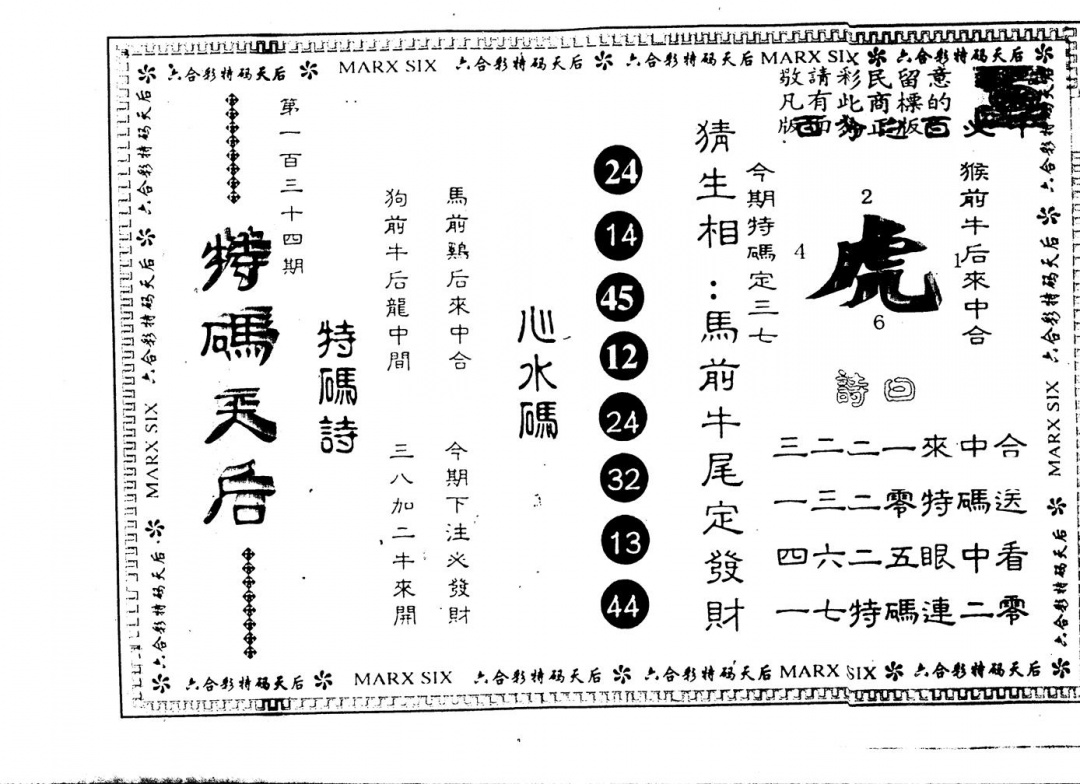 六合彩特码天后 MARX SIX 六合彩特码天后 六合彩特码天后 MARX SIX 六合彩特码天后
敬請彩民留意
凡有此商標的
版面
正版
猴前牛后來中合
2
4
虎
1
6
詩曰
三二二一來中合
一三二零特碼送
四六二五眼中看
一七特碼連二零
今期特碼定三七
猜生相：馬前牛尾定發財
24
14
45
12
24
32
13
44
心水碼
馬前鷄后來中合
今期下注必發財
狗前牛后龍中間
三八加二牛來開
特碼詩
第一百三十四期
特碼天后
六合彩特码天后 六合彩特码天后 MARX SIX 六合彩特码天后
六合彩特码天后 六合彩特码天后 MARX SIX 六合彩特码天后
六合彩特码天后 MARX SIX 六合彩特码天后 六合彩特码天后 MARX SIX 六合彩特码天后